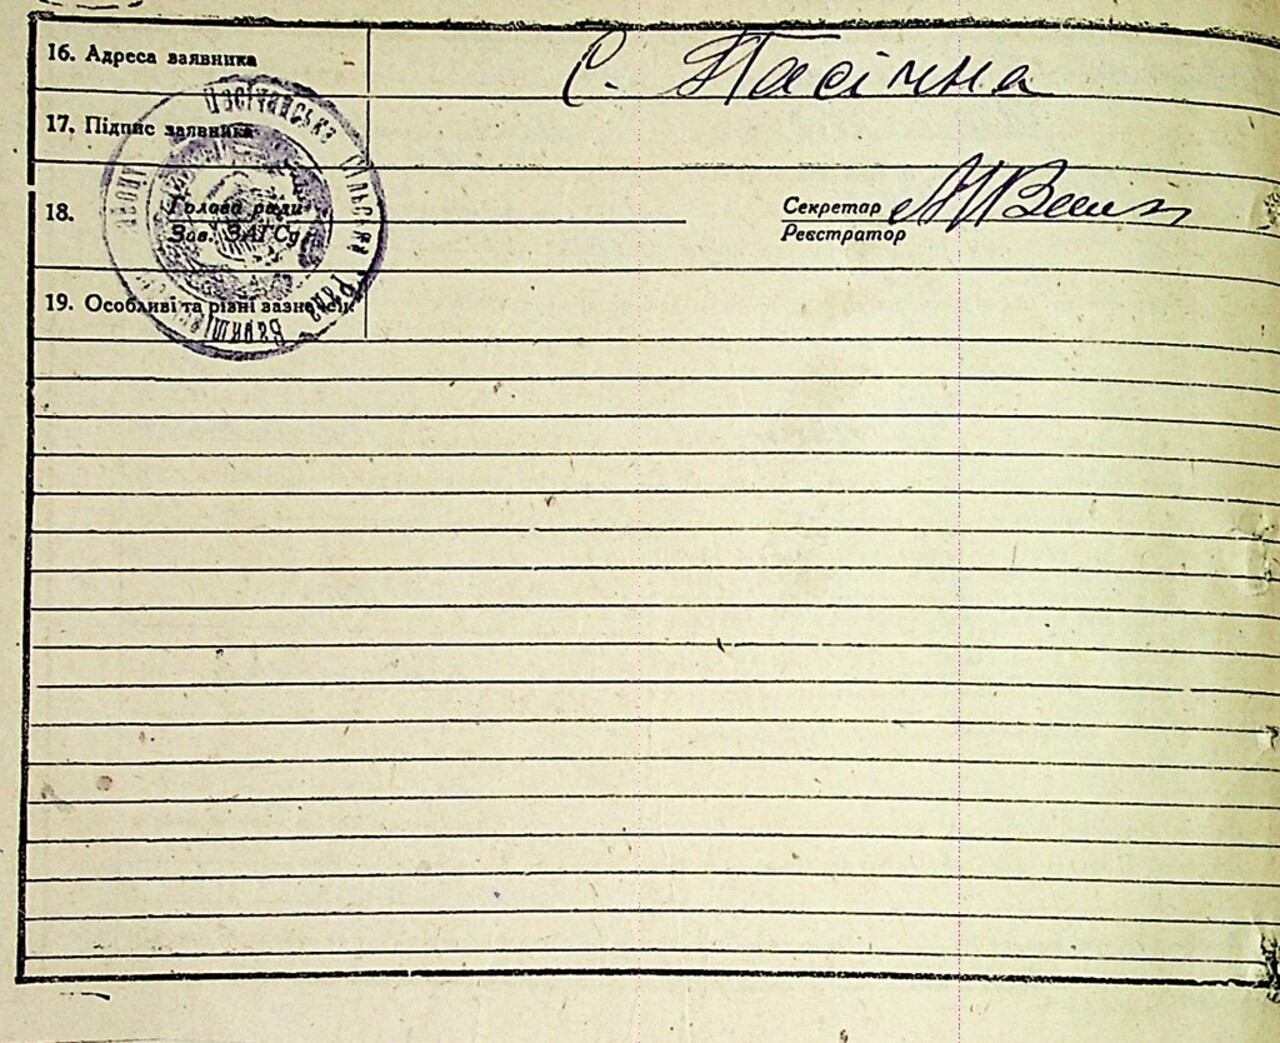 16. Адреса заявника
С. Пасічна
17. Підпис заявника
18.
Голова ради
Зав. ЗАГСу
Секретар
Реєстратор
19. Особливі та різні
Пасічнянська сільська рада